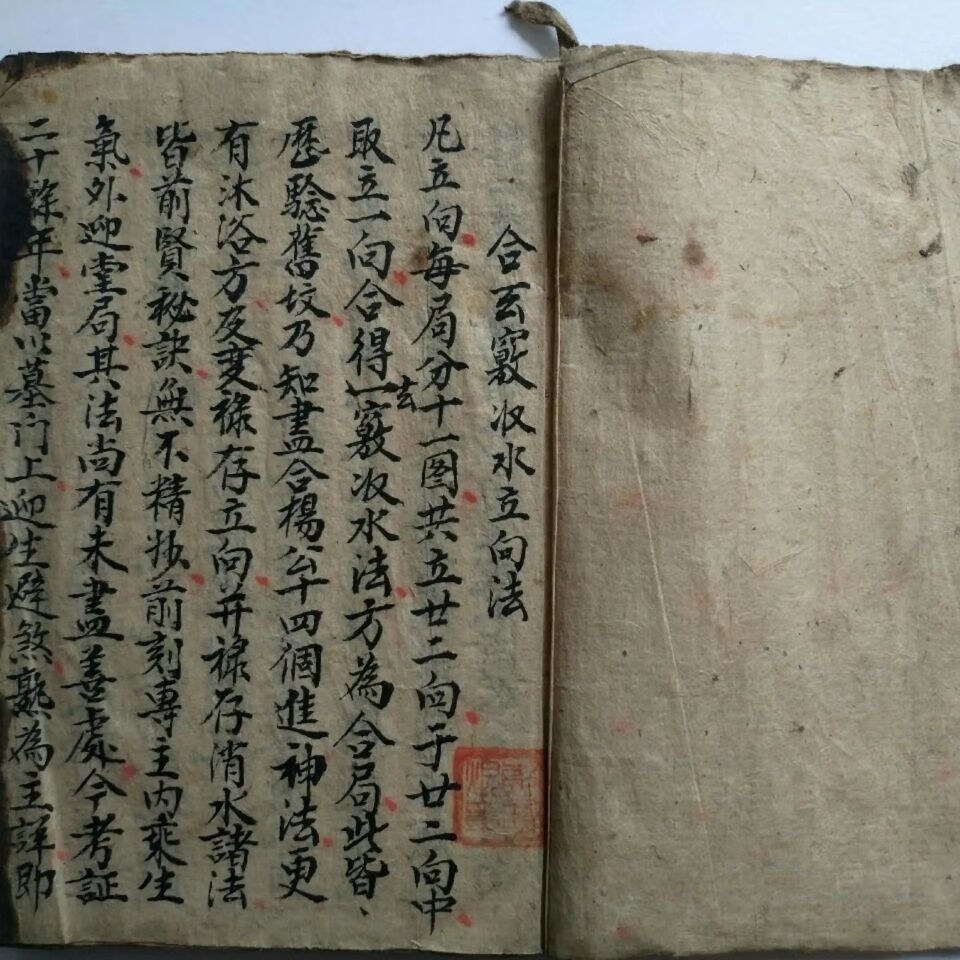 合玄竅收水立向法
凡立向每局分十一图共立廿二向于廿二向中
取立一向合得一玄竅收水法方為合局此皆、
歷驗舊坟乃知盡合楊公十四個進神法更
有沐浴方及变祿存立向并祿存消水諸法
皆前賢秘訣無不精妙前刻專主內乘生
氣外迎堂局其法尚有未盡善處今考証
二十餘年當以墓门上迎生避煞為主詳即